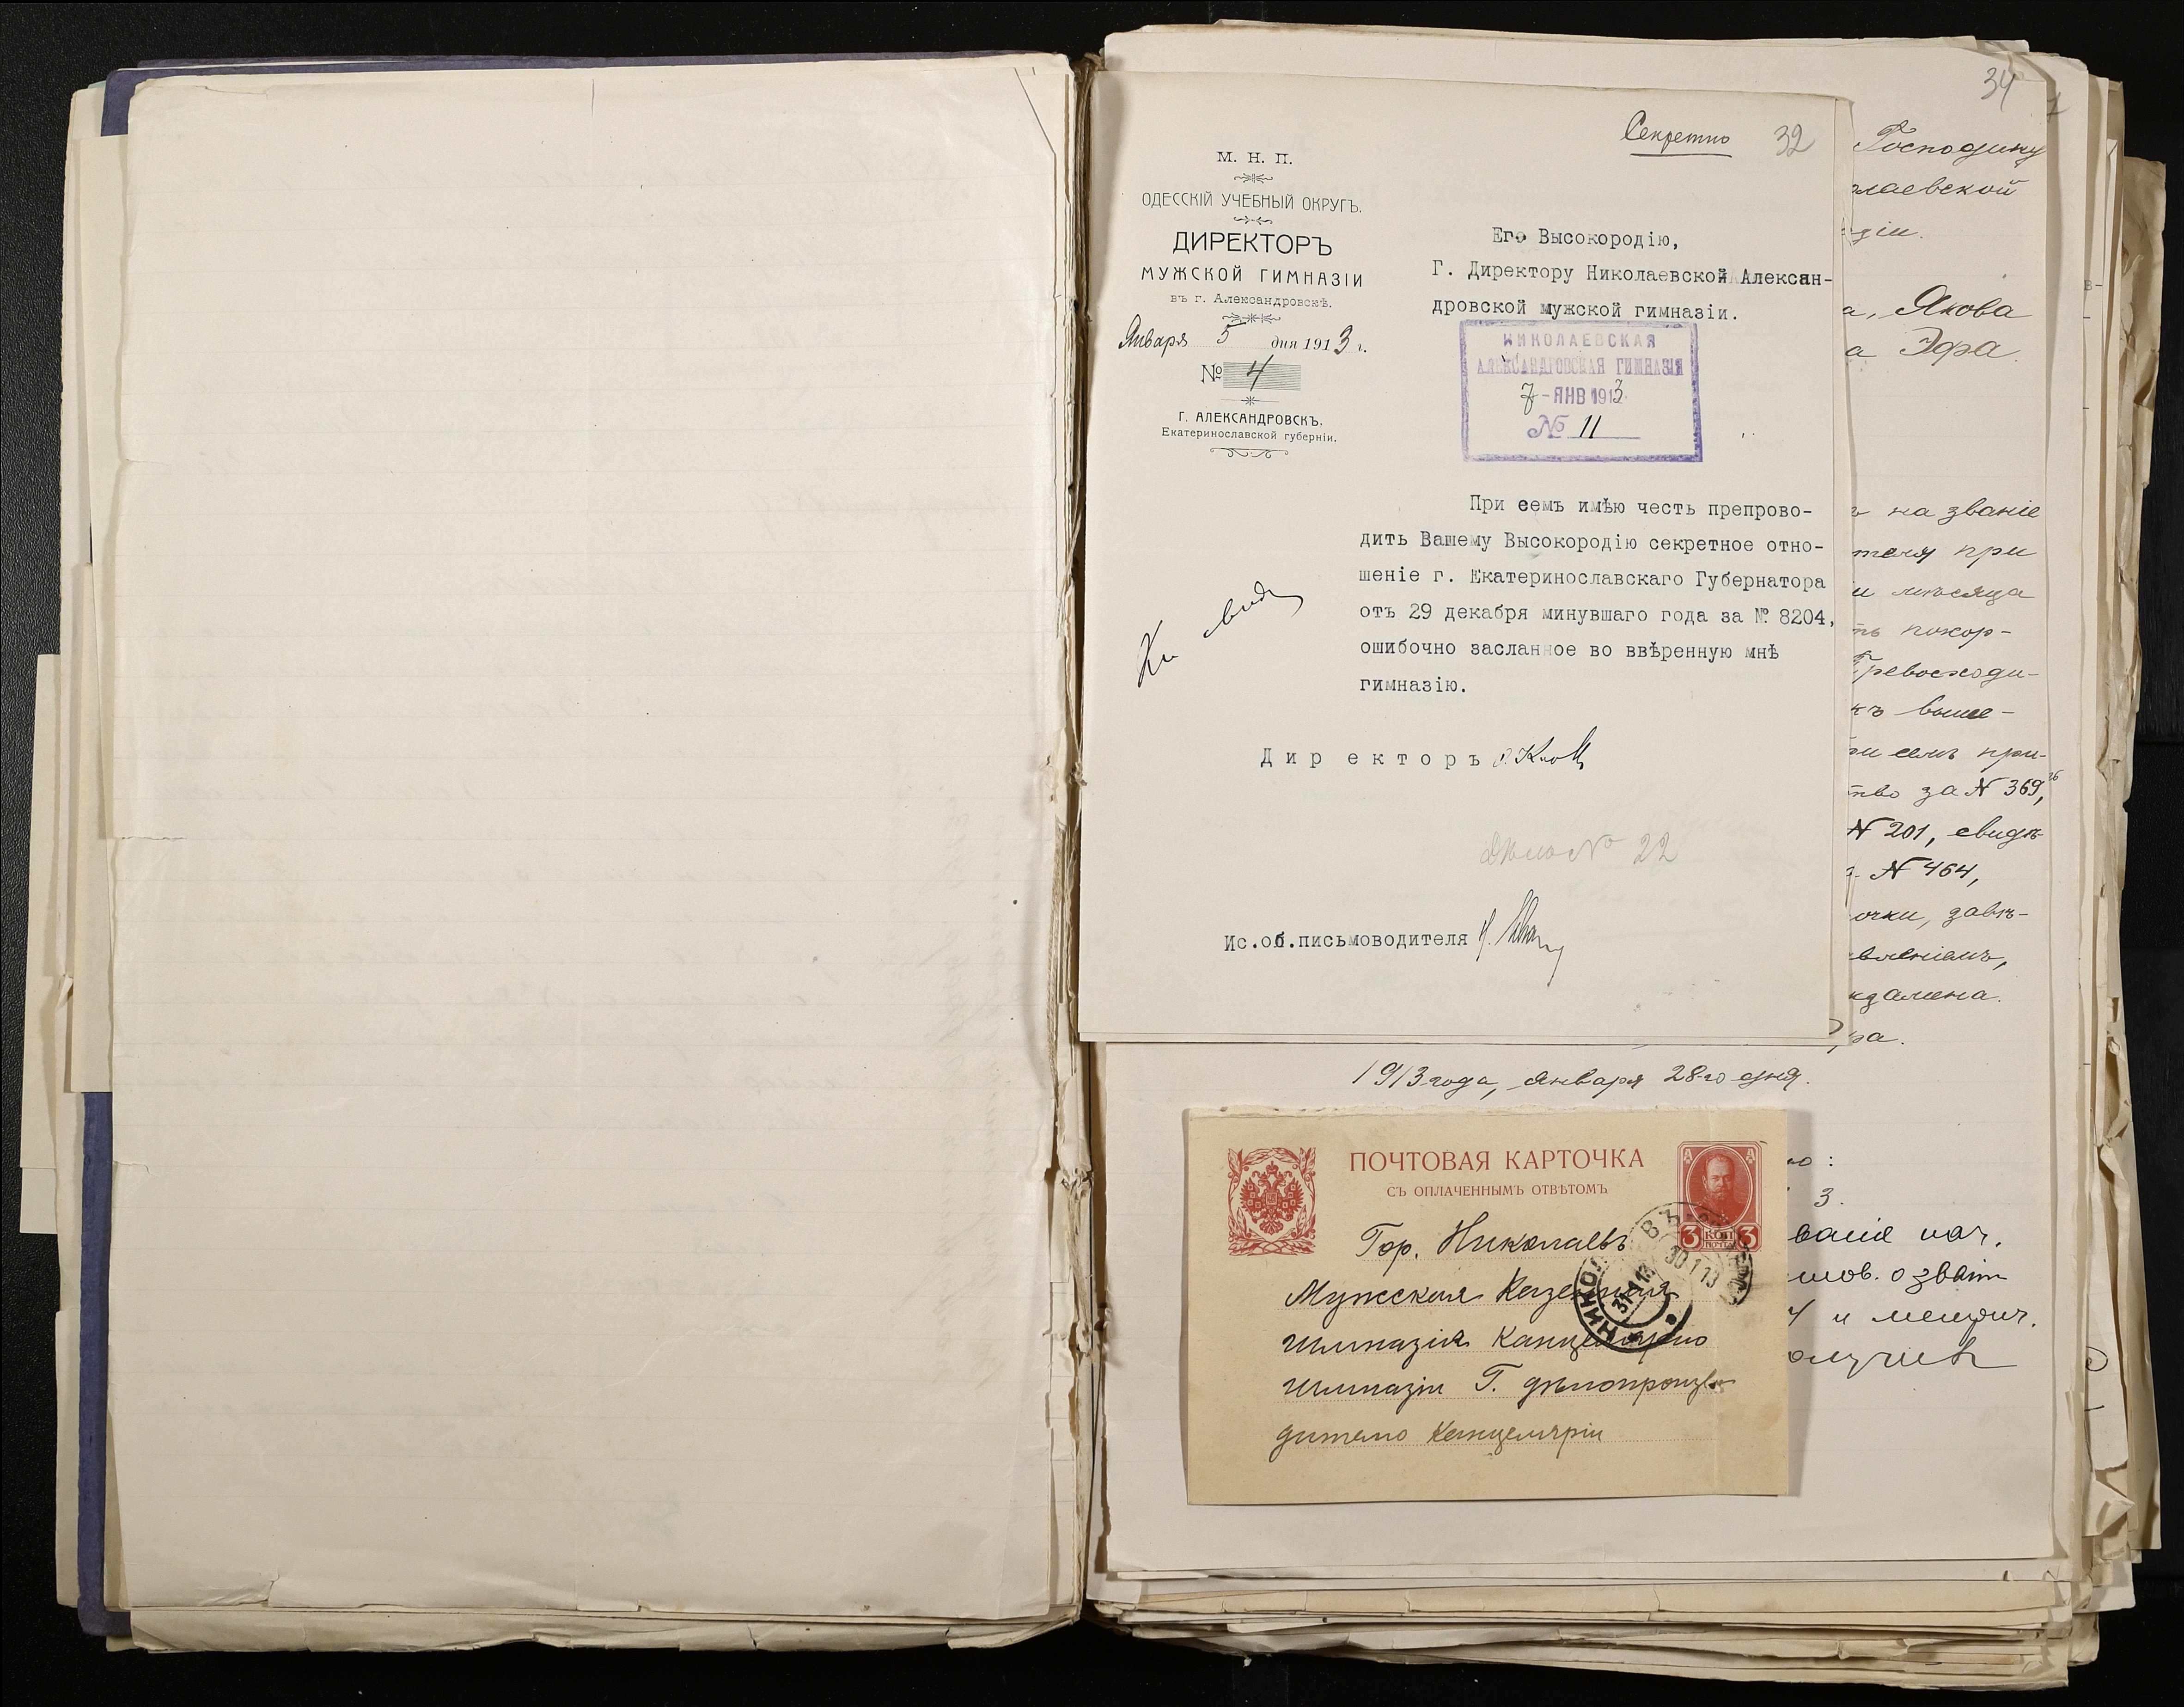 34
Секретно 32
М. Н. П.
ОДЕССКІЙ УЧЕБНЫЙ ОКРУГЪ.
ДИРЕКТОРЪ
МУЖСКОЙ ГИМНАЗІИ
въ г. Александровскѣ.
Января 5 дня 1913 г.
№ 4
Г. АЛЕКСАНДРОВСКЪ,
Екатеринославской губерніи.
Его Высокородію,
Г. Директору Николаевской Алексан-
дровской мужской гимназіи.
НИКОЛАЕВСКАЯ
АЛЕКСАНДРОВСКАЯ ГИМНАЗІЯ
7 - ЯНВ 1913
№ 11
При семъ имѣю честь препрово-
дить Вашему Высокородію секретное отно-
шеніе г. Екатеринославскаго Губернатора
отъ 29 декабря минувшаго года за № 8204,
ошибочно засланное во ввѣренную мнѣ
гимназію.
Директоръ
Дѣло № 22
Ис.об.письмоводителя
Господину
олаевской
зіи.
а, Якова
а Эфра.
ъ на званіе
теля при
и мѣсяца
ть покор-
Превосходи-
къ выше-
ри семъ при-
тво за N 369,
N 201, свидѣ-
N 464,
очки, завѣ-
вленіемъ,
кзамена.
ра.
1913 года, Января 28-го дня.
3.
ванія нач.
и метрич.
ПОЧТОВАЯ КАРТОЧКА
СЪ ОПЛАЧЕННЫМЪ ОТВѢТОМЪ
3 КОП ПОЧТА 3
30 1 13
НИКОЛ
31 1 13
Гор. Николаевъ
Мужская Казенная
Гимназія Канцелярію
Гимназіи Г. дѣлопроизво
дителю Канцеляріи